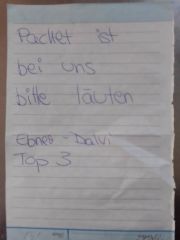 Packet ist
bei uns
bitte läuten
Ebner - Dalvi
Top 3